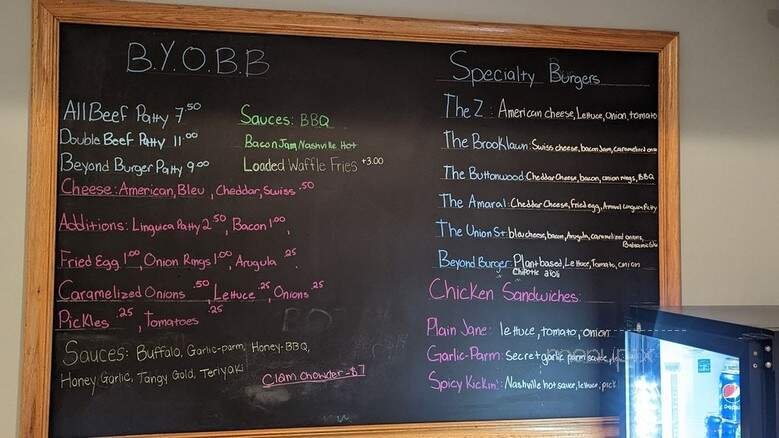 B.Y.O.B.B
All Beef Patty 7.50
Double Beef Patty 11.00
Beyond Burger Patty 9.00
Sauces: BBQ
Bacon Jam, Nashville Hot
Loaded Waffle Fries +3.00
Cheese: American, Bleu, Cheddar, Swiss .50
Additions: Linguica Patty 2.50, Bacon 1.00,
Fried Egg 1.00, Onion Rings 1.00, Arugula .25
Caramelized Onions .50, Lettuce .25, Onions .25
Pickles .25, Tomatoes .25
Sauces: Buffalo, Garlic-parm, Honey-BBQ,
Honey Garlic, Tangy Gold, Teriyaki
Clam Chowder - $7
Specialty Burgers
The Z: American cheese, Lettuce, Onion, tomato
The Brooklawn: Swiss cheese, bacon jam, caramelized
The Buttonwood: Cheddar Cheese, bacon, onion rings, BBQ
The Amaral: Cheddar Cheese, Fried egg, Amaral Linguica Patty
The Union St: bleu cheese, bacon, Arugula, caramelized onions,
Balsamic
Beyond Burger: Plant based, Lettuce, Tomato, onion
Chipotle aioli
Chicken Sandwiches:
Plain Jane: lettuce, tomato, onion
Garlic-Parm: Secret garlic parm sauce,
Spicy Kickin': Nashville hot sauce, lettuce, pick
pepsi